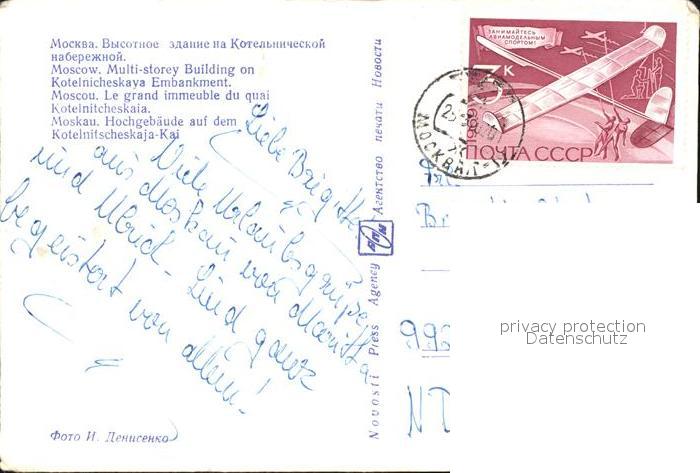 Москва. Высотное здание на Котельнической
набережной.
Moscow. Multi-storey Building on
Kotelnicheskaya Embankment.
Moscou. Le grand immeuble du quai
Kotelnitcheskaia.
Moskau. Hochgebäude auf dem
Kotelnitscheskaja-Kai
Liebe Brigitte,
Viele Urlaubsgrüße
aus Moskau von
und Ulrich - Sind ganz
begeistert von allem!
Фото И. Денисенко
Novosti Press Agency
АПН
Агентство печати Новости
ЗАНИМАЙТЕСЬ
АВИАМОДЕЛЬНЫМ
СПОРТОМ!
3 К
ПОЧТА СССР
МОСКВА
privacy protection
Datenschutz